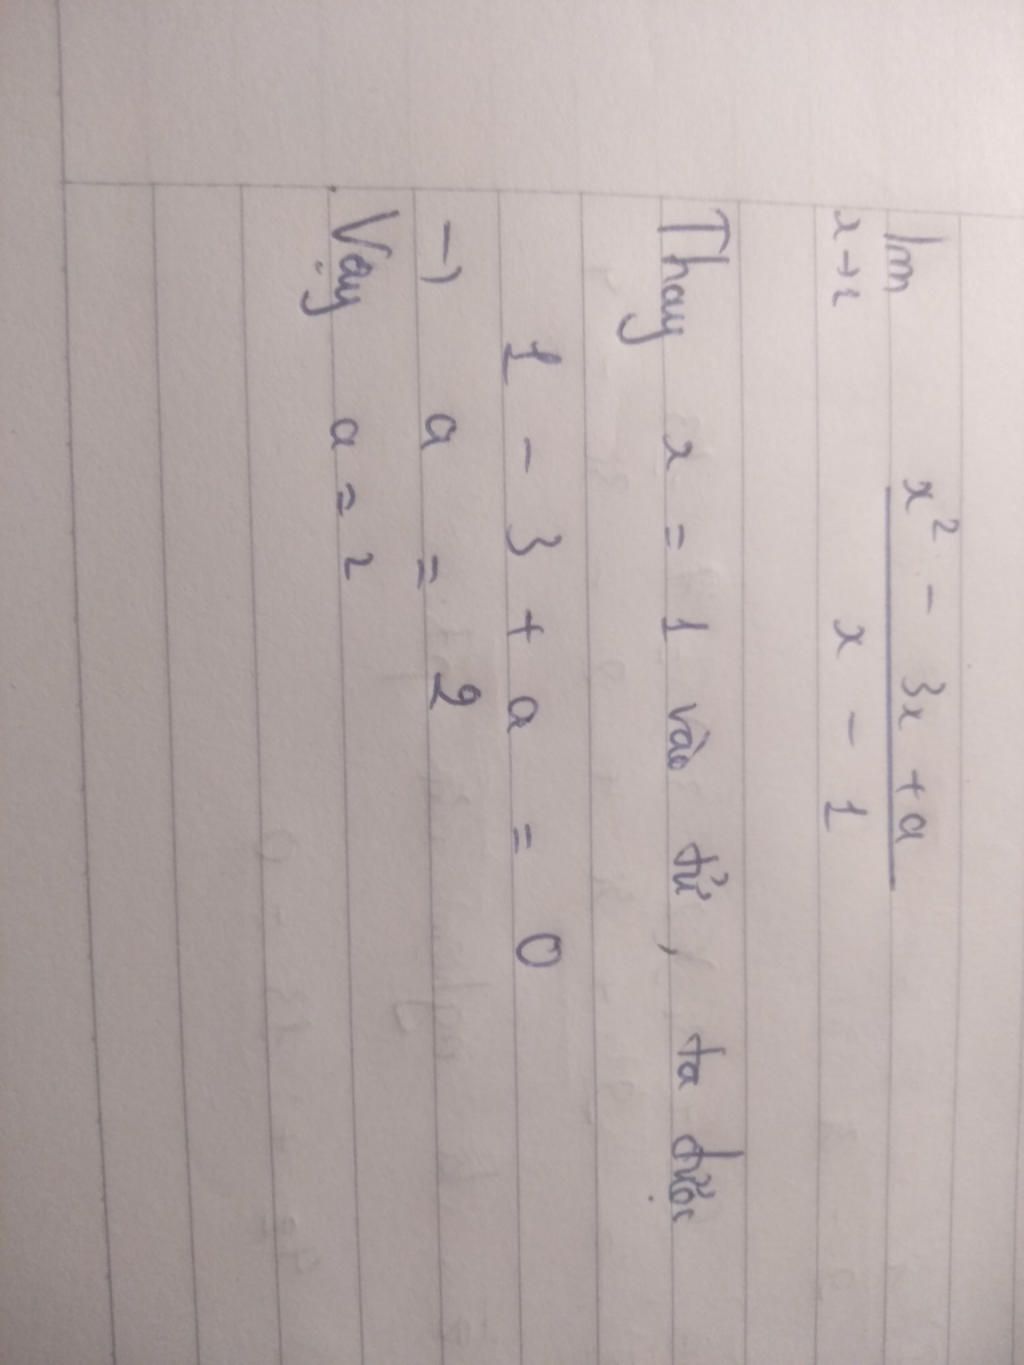 lim x² - 3x + a
x→1 x - 1
Thay x = 1 vào tử, ta được
1 - 3 + a = 0
→ a = 2
Vậy a = 2